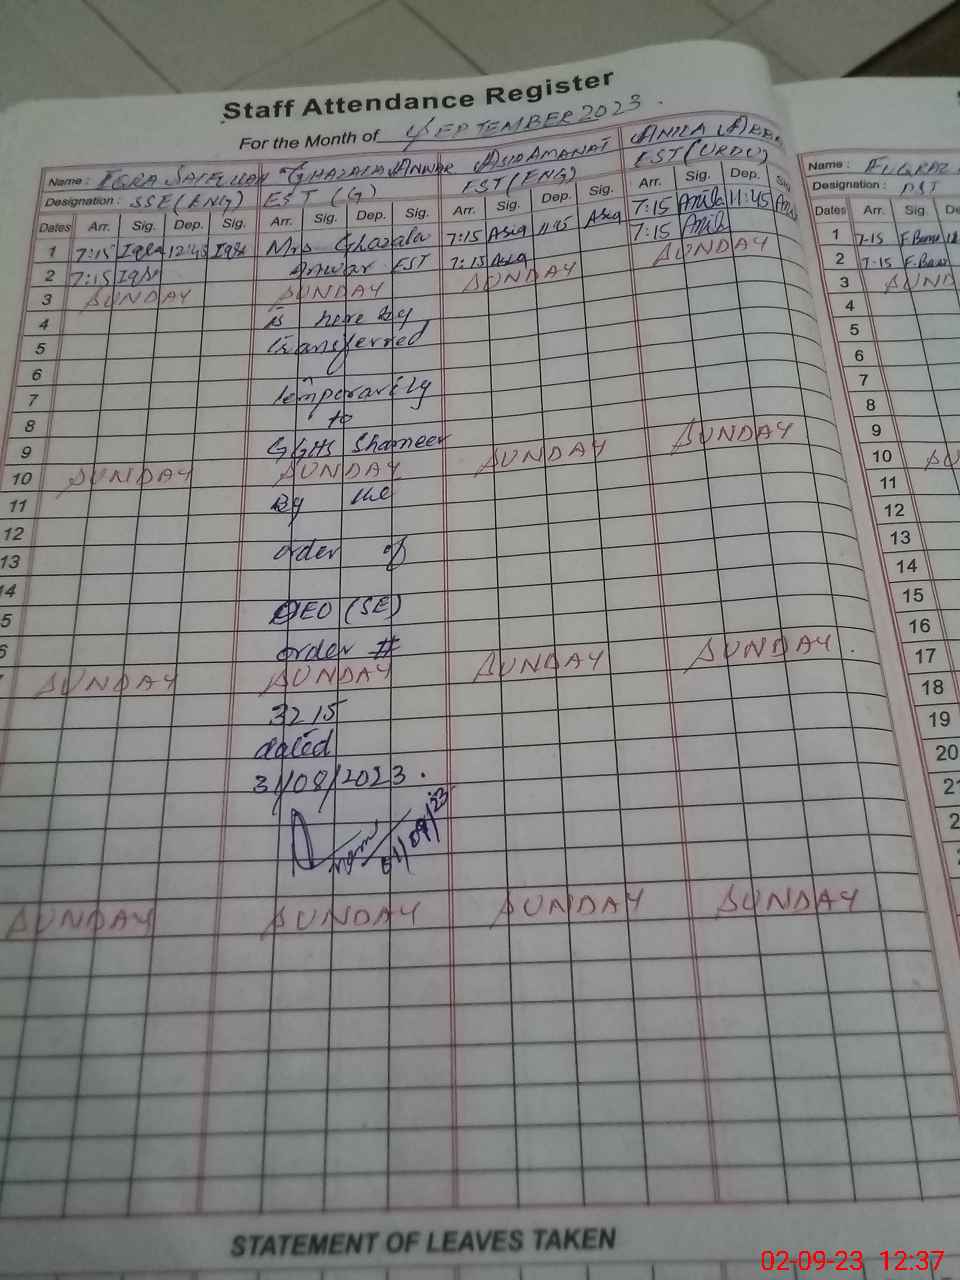 Staff Attendance Register
For the Month of SEPTEMBER 2023.
Name : IQRA SAIFULLAH GHAZALA ANWAR ASIA AMANAT ANILA
Designation : SSE(ENG) EST (G) EST(ENG) EST(URDU)
Dates Arr. Sig. Dep. Sig. Arr. Sig. Dep. Sig. Arr. Sig. Dep. Sig. Arr. Sig. Dep. Sig
1 7:15 Iqra 12:45 Iqra Mrs Ghazala 7:15 Asia 11:45 Asia 7:15 Anila 11:45
2 7:15 Iqra Anwar EST 7:15 Asia 7:15 Anila
3 SUNDAY SUNDAY SUNDAY SUNDAY
4 is here by
5 transferred
6
7 temporarily
8 to
9 GGHS Shameer
10 SUNDAY SUNDAY SUNDAY SUNDAY
11 By the
12
13 order of
14
5 DEO (SE)
6 order #
SUNDAY SUNDAY SUNDAY SUNDAY
3215
dated
31/08/2023.
01/09/23
SUNDAY SUNDAY SUNDAY SUNDAY
STATEMENT OF LEAVES TAKEN
Name :
Designation :
Dates Arr. Sig. De
1 7-15
2 7-15
3 SUND
4
5
6
7
8
9
10 SU
11
12
13
14
15
16
17
18
19
20
21
2
02-09-23 12:37